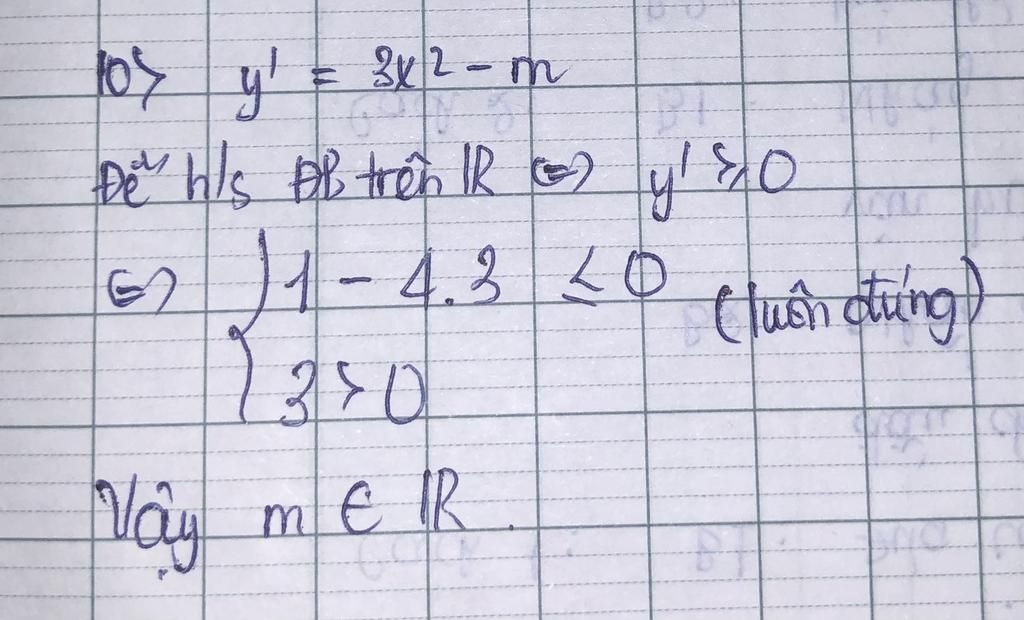 10> y' = 3x² - m
Để h/s ĐB trên ℝ <=> y' ≥ 0
<=> { 1 - 4.3 ≤ 0 (luôn đúng)
3 > 0
Vậy m ∈ ℝ.